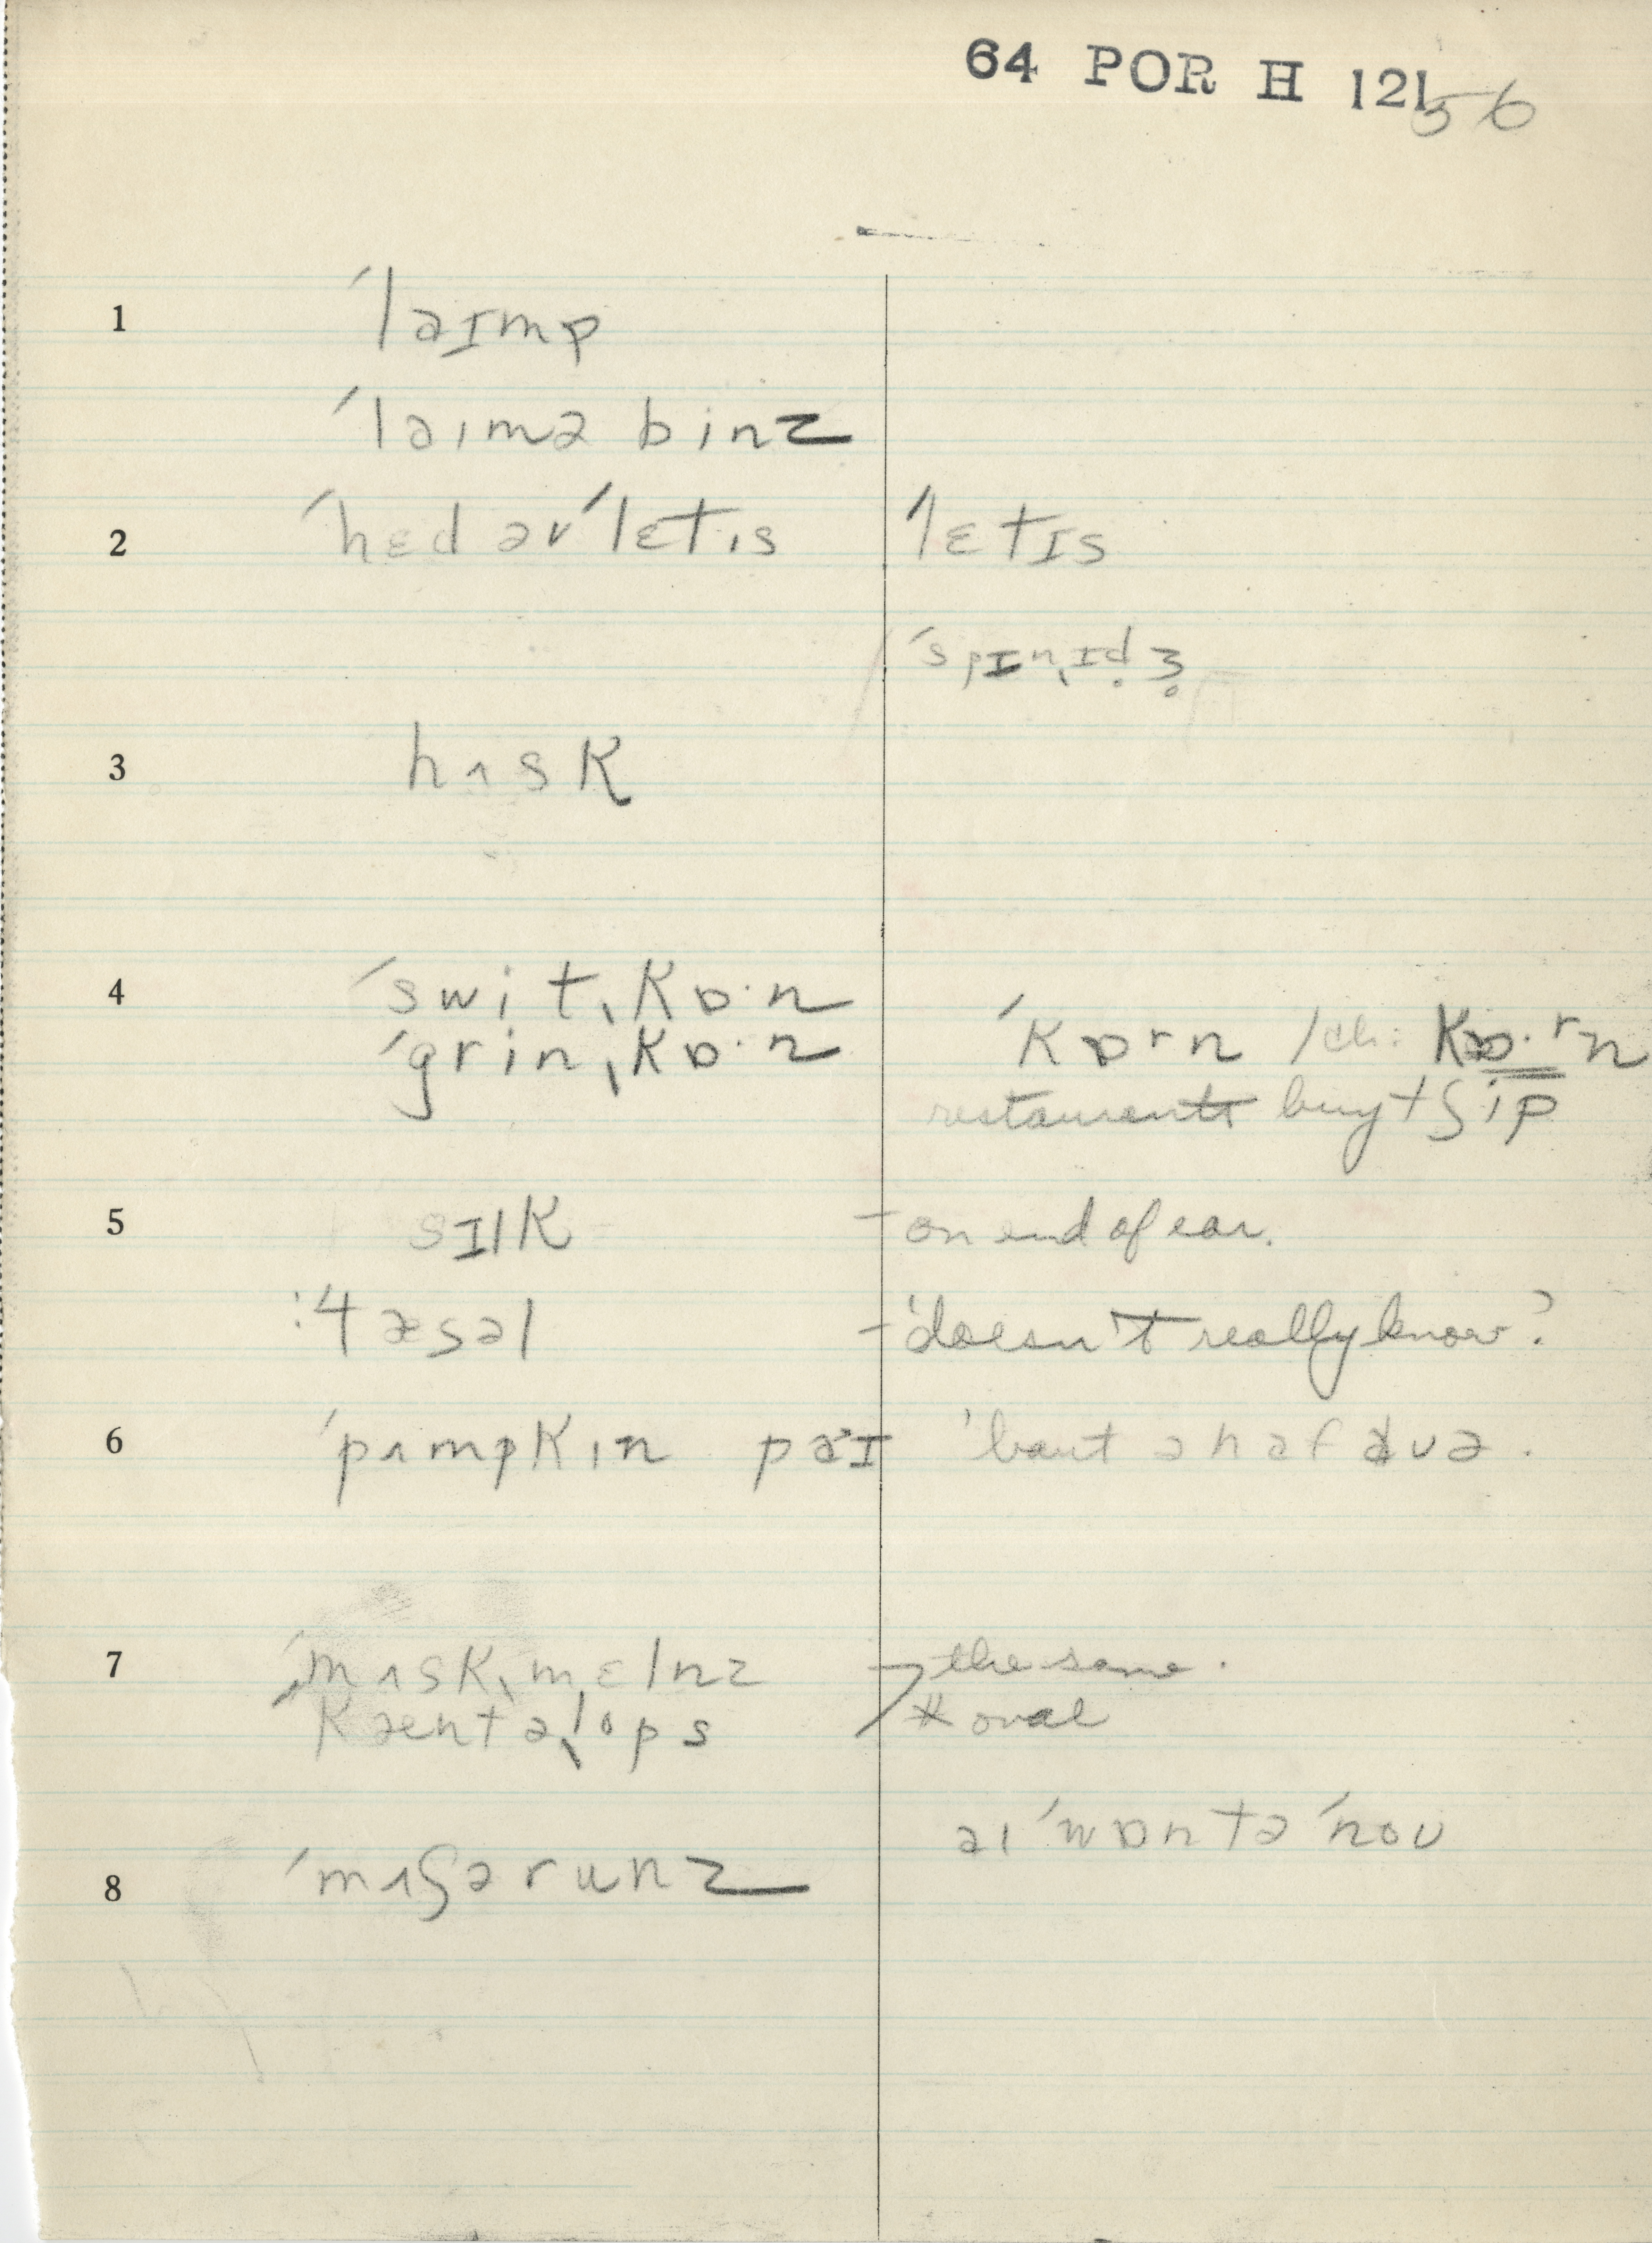 64 POR H 121
56
1 ˈlaɪmp
ˈlaɪmə binz
2 ˈhɛd əv ˈlɛtɪs ˈlɛtɪs
ˈspɪnˌɪd̥ʒ̊
3 hʌsk
4 ˈswitˌkɒ·n
ˈgrinˌkɒ·n ˈkɒrn /ch: kɒ·rn
restaurants buy tʃip
5 sɪlk – on end of ear.
:4 æsəl – 'doesn't really know?
6 ˈpʌmpkɪn paɪ 'bout ə haf avə.
7 ˈmʌskˌmɛlnz the same.
ˈkæntəˌlops # oval
aɪ ˈwɒntə ˈnoʊ
8 ˈmʌʃərunz